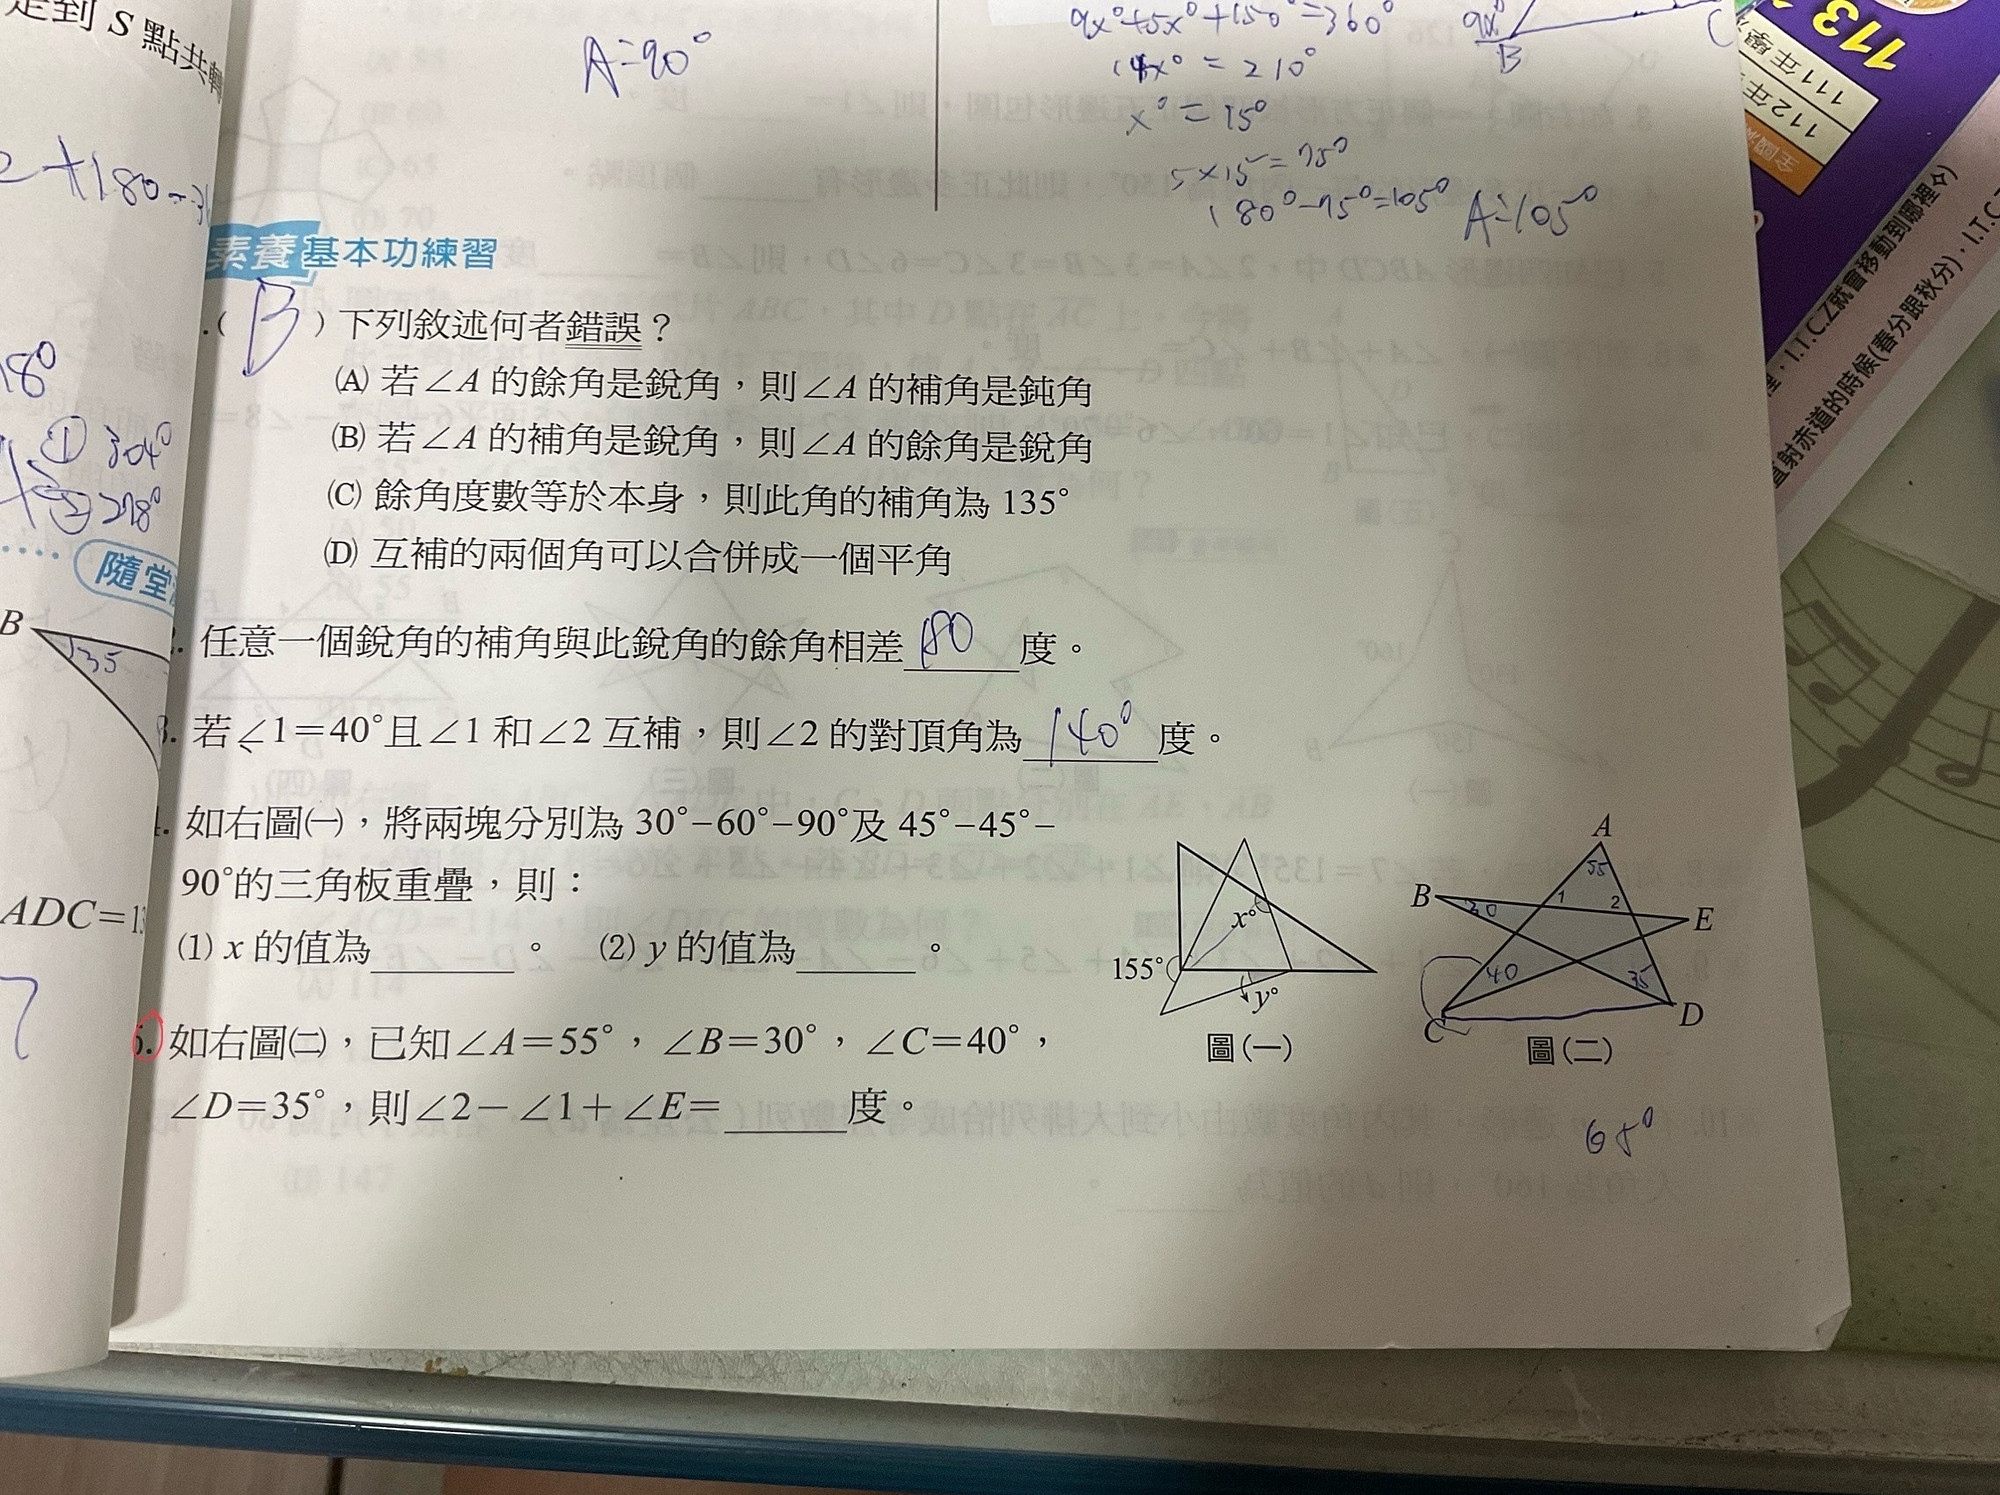 走到 S 點共轉
A=90°
9x°+5x°+150°=360°
14x° = 210°
x° = 15°
5×15=75°
180°-75°=105° A=105°
9x°
B
C
113
112年
111年 學
全國
I.T.C.Z就會移動到哪裡✧)
直射赤道的時候(春分跟秋分)，I.T.C.
+180-3
18°
① 304°
② 278°
隨堂
B
35
ADC=13
素養基本功練習
.( B )下列敘述何者錯誤？
(A) 若∠A 的餘角是銳角，則∠A 的補角是鈍角
(B) 若∠A 的補角是銳角，則∠A 的餘角是銳角
(C) 餘角度數等於本身，則此角的補角為 135°
(D) 互補的兩個角可以合併成一個平角
2. 任意一個銳角的補角與此銳角的餘角相差180度。
3. 若∠1=40°且∠1 和∠2 互補，則∠2 的對頂角為140°度。
. 如右圖㈠，將兩塊分別為 30°−60°−90°及 45°−45°−
90°的三角板重疊，則：
⑴ x 的值為______。 ⑵ y 的值為______。
x°
155°
y°
圖(一)
A
55
B
30
1
2
E
40
35
C
D
圖(二)
5. 如右圖㈡，已知∠A=55°，∠B=30°，∠C=40°，
∠D=35°，則∠2−∠1+∠E=______度。
65°